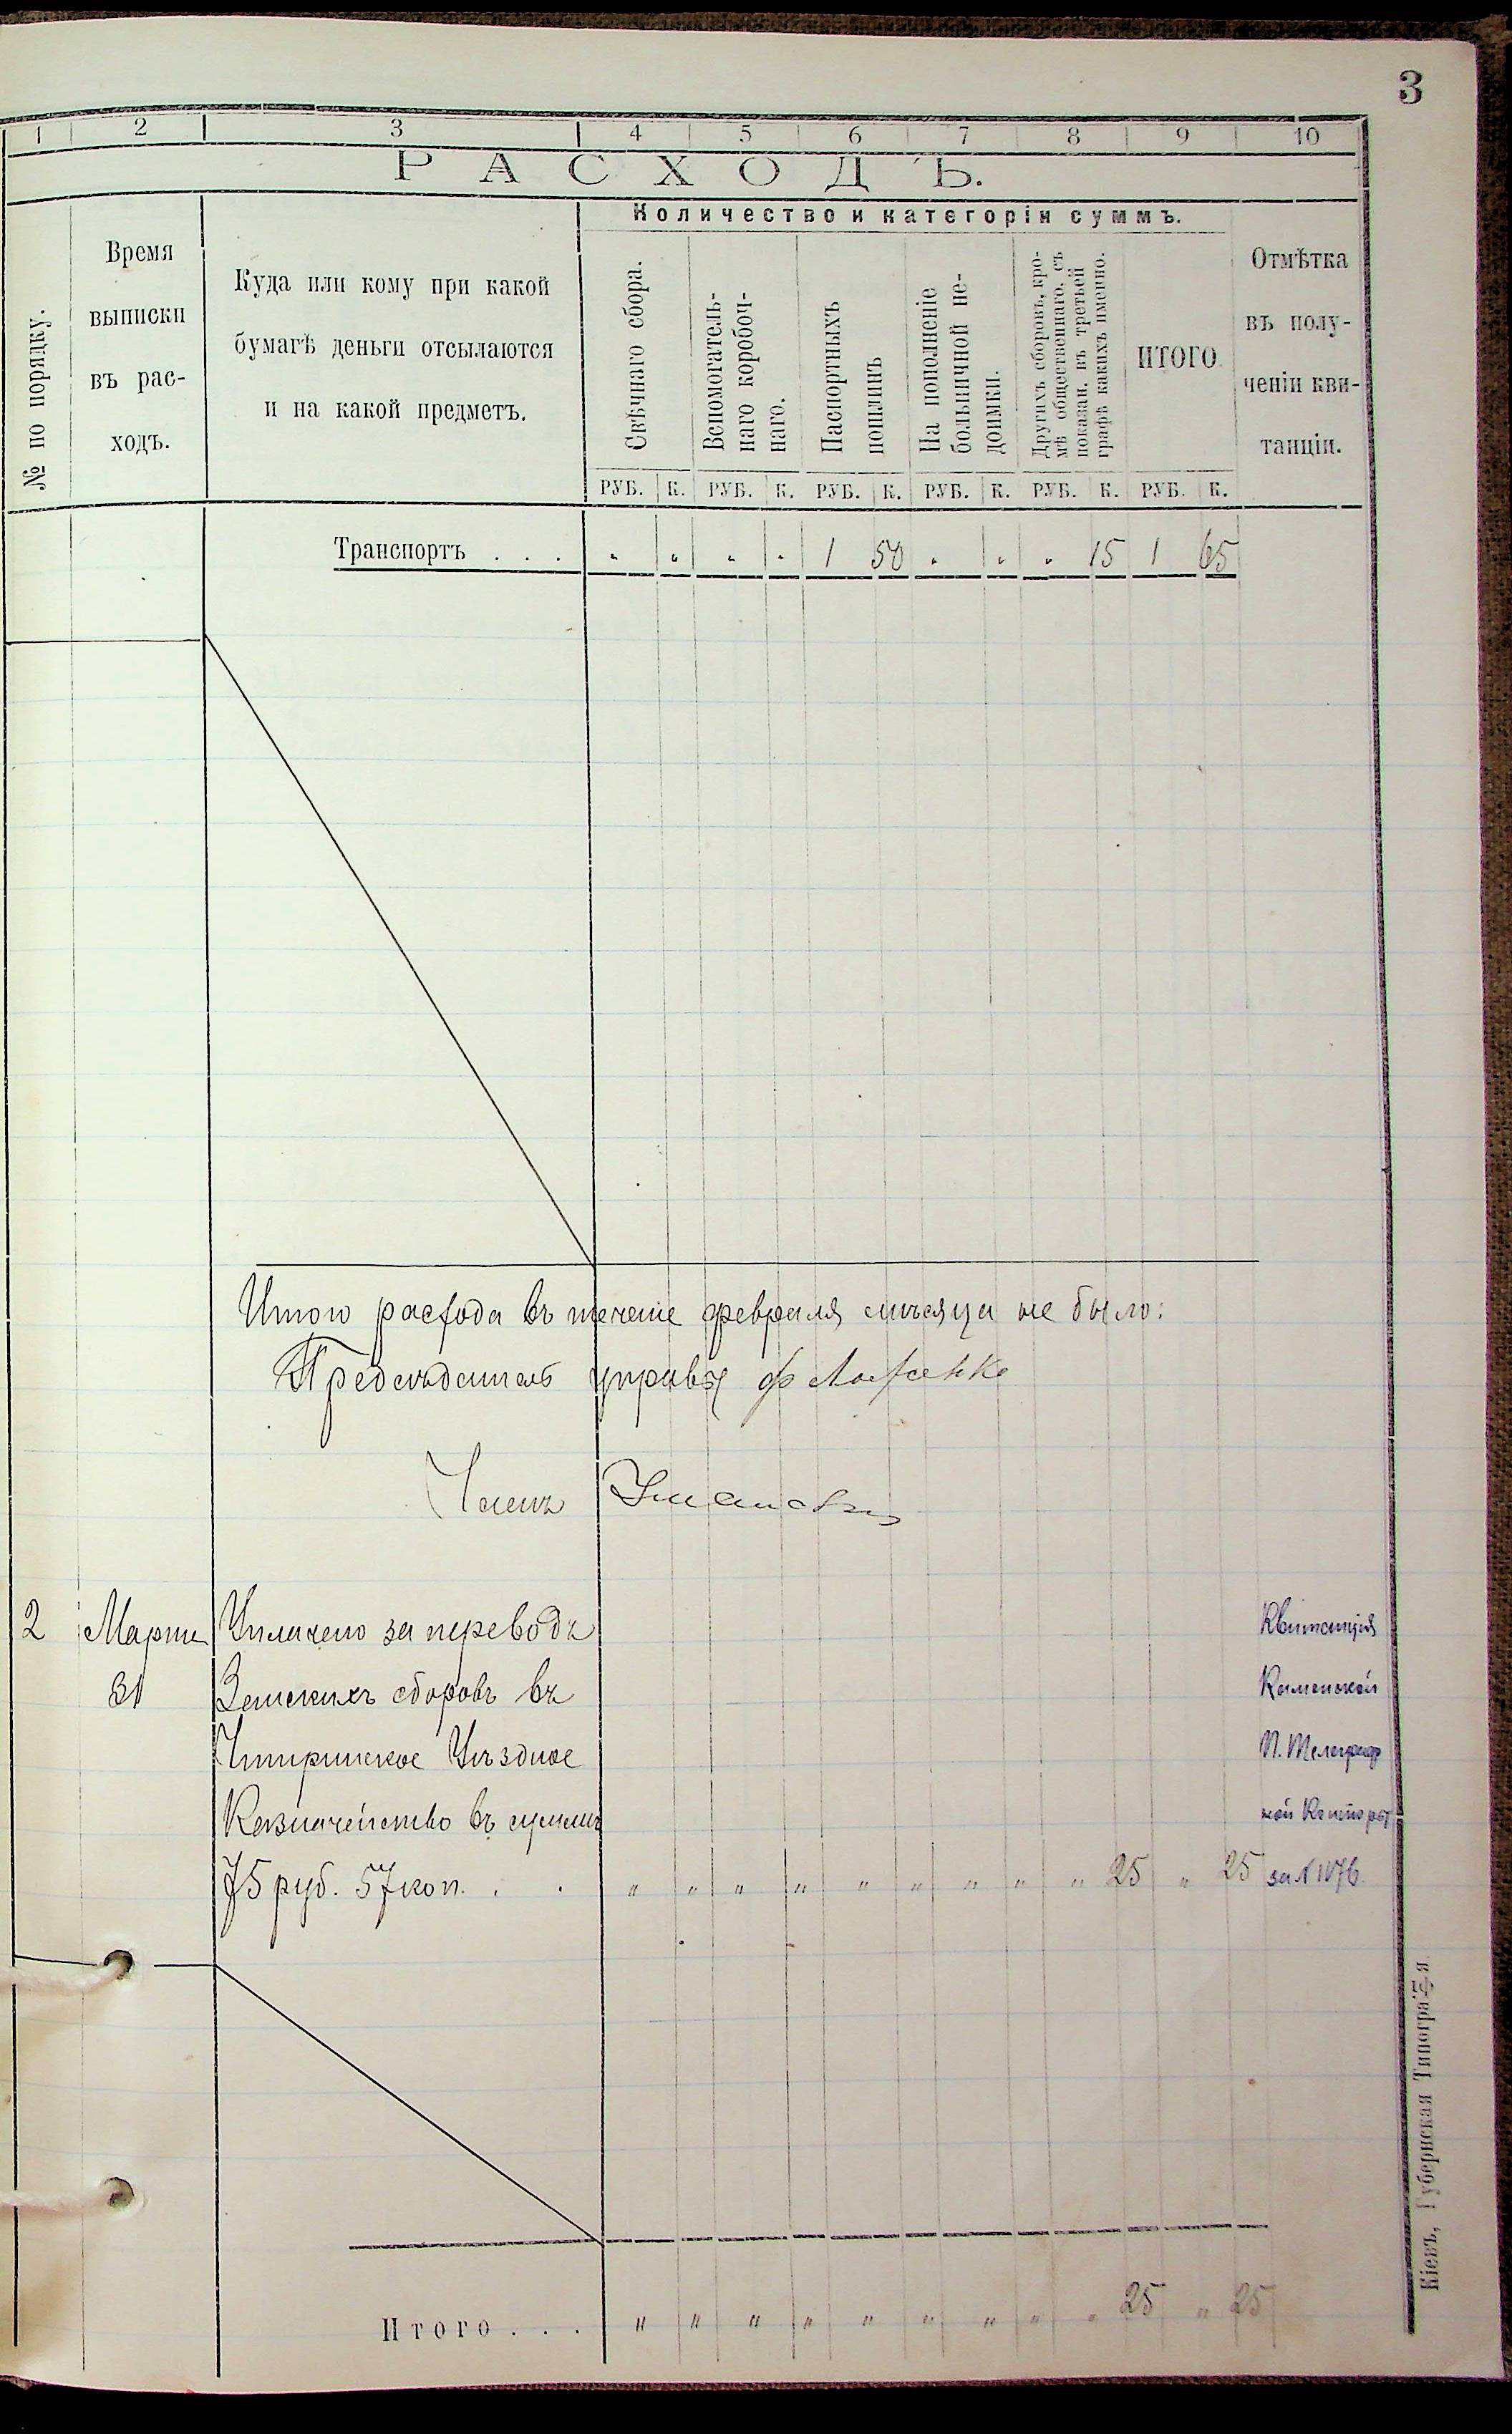 3
1 2 3 4 5 6 7 8 9 10
РАСХОДЪ.
№ по порядку.
Время
выписки
въ рас-
ходъ.
Куда или кому при какой
бумагѣ деньги отсылаются
и на какой предметъ.
Количество и категоріи суммъ.
Свѣчнаго сбора.
Вспомогатель-
наго коробоч-
наго.
Паспортныхъ
пошлинъ
На пополненіе
больничной не-
доимки.
Другихъ сборовъ, кро-
мѣ общественнаго, съ
показан. въ третьей
графѣ какихъ именно.
ИТОГО.
Отмѣтка
въ полу-
ченіи кви-
танціи.
РУБ. К. РУБ. К. РУБ. К. РУБ. К. РУБ. К. РУБ. К.
Транспортъ . . . „ „ „ „ 1 50 „ „ „ 15 1 65
Итого расхода въ теченіе февраля мѣсяца не было:
Предсѣдатель управы
Членъ
2 Марта Уплачено за переводъ Квитанція
31 Земскихъ сборовъ въ Каменской
Чигиринское Уѣздное П. Телеграф
Казначейство въ суммѣ ной Конторы
75 руб. 57 коп. . . „ „ „ „ „ „ „ „ „ 25 „ 25 за № 1076
Итого . . . „ „ „ „ „ „ „ „ „ 25 „ 25
Кіевъ, Губернская Типографія